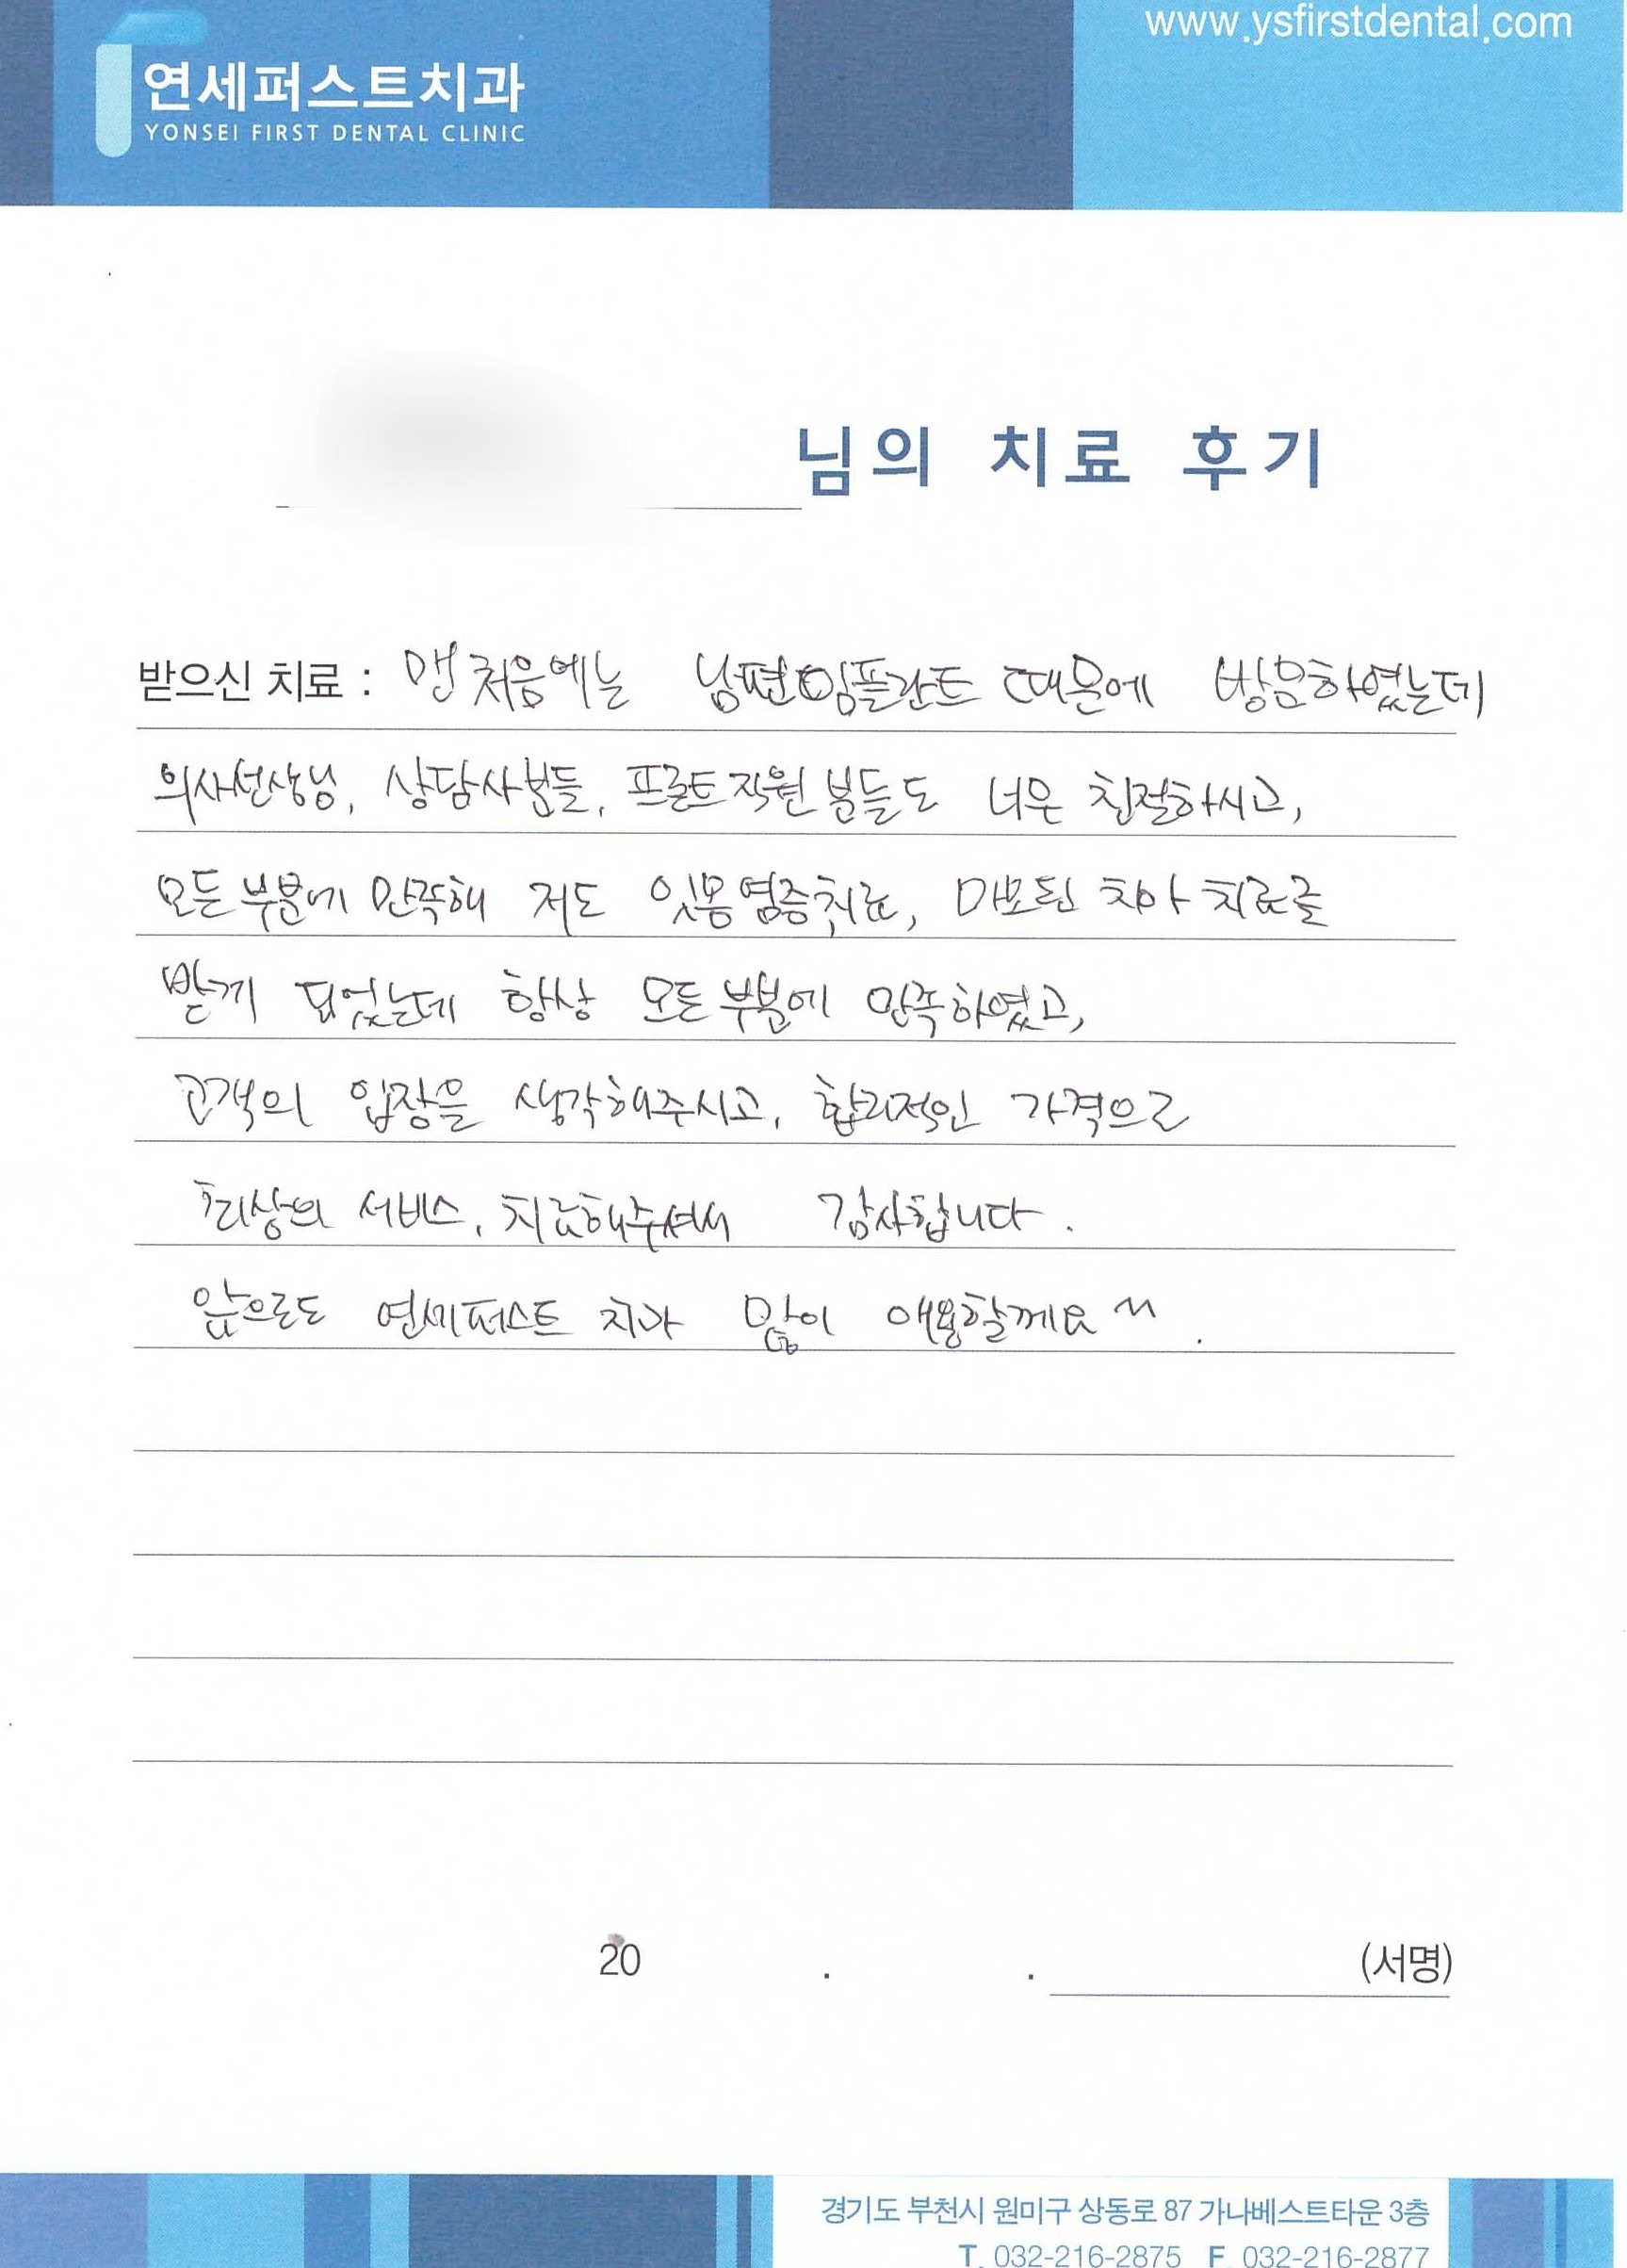 www.ysfirstdental.com
연세퍼스트치과
YONSEI FIRST DENTAL CLINIC
님의 치료 후기
받으신 치료 : 맨처음에는 남편임플란트 때문에 방문하였는데
의사선생님, 상담사분들, 프론트직원분들도 너무 친절하시고,
모든부분에 만족해 저도 잇몸염증치료, 마모된 치아 치료를
받게 되었는데 항상 모든부분에 만족하였고,
고객의 입장을 생각해주시고, 합리적인 가격으로
최상의 서비스, 치료해주셔서 감사합니다.
앞으로도 연세퍼스트 치과 많이 애용할께요^^.
20 . . (서명)
경기도 부천시 원미구 상동로 87 가나베스트타운 3층
T. 032-216-2875 F. 032-216-2877